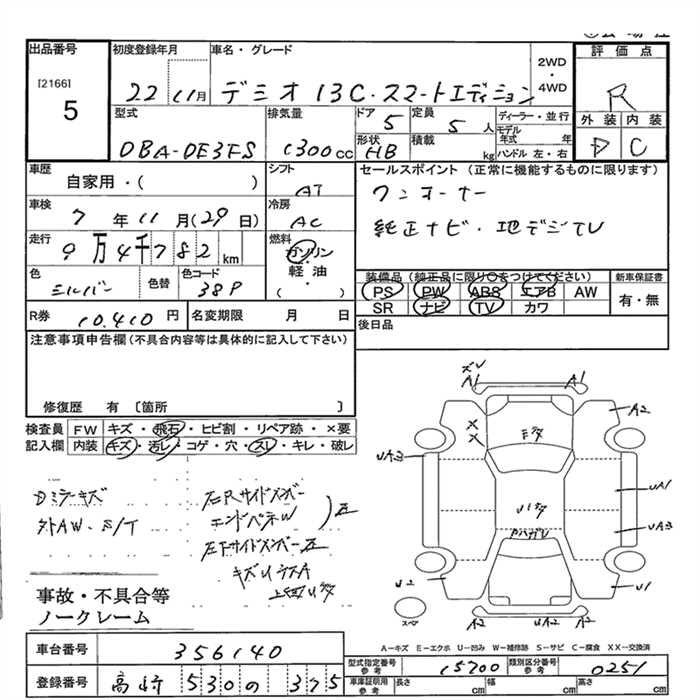 出品番号
[2166]
5
初度登録年月
22 11月
車名・グレード
デミオ 13C・スマートエディション
2WD
・
4WD
評価点
R
外装 内装
D C
型式
DBA-DE3FS
排気量
1300cc
ドア
5
定員
5人
ディーラー・並行
モデル
年式 年
ハンドル 左・右
形状
HB
積載
kg
車歴
自家用・( )
シフト
AT
車検
7年11月(29日)
冷房
AC
走行
9万4千782km
燃料
ガソリン
・
軽油
( )
色
シルバー
色替
色コード
38P
R券 10.410円
名変期限 月 日
セールスポイント(正常に機能するものに限ります)
ワンオーナー
純正ナビ・地デジTV
装備品(純正品に限り○をつけてください)
PS PW ABS エアB AW
SR ナビ TV カワ
新車保証書
有・無
後日品
注意事項申告欄(不具合内容等は具体的に記入して下さい)
修復歴 有 〔箇所 〕
検査員
記入欄
FW キズ・飛石・ヒビ割・リペア跡・×要
内装 キズ・汚レ・コゲ・穴・スレ・キレ・破レ
Dミラーキズ
外AW・S/T
右Rサイドメンバー
エンドパネルW
左Fサイドメンバー
事故・不具合等
ノークレーム
ズレ
A1 A1
A2
UA3
UA1
UA3
U2
U1
A2 UA2 A2
スペア
A－キズ E－エクボ U－凹み W－補修跡 S－サビ C－腐食 XX－交換済
車台番号 356140
登録番号 高崎 530 の 375
型式指定番号
参考
15700
類別区分番号
参考
0251
車庫証明用
参考
長さ cm 幅 cm 高さ cm